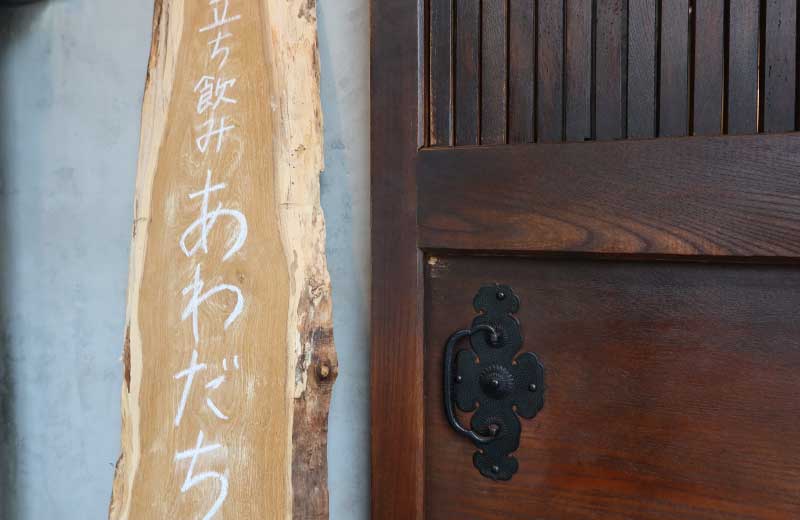 立ち飲み あわだち